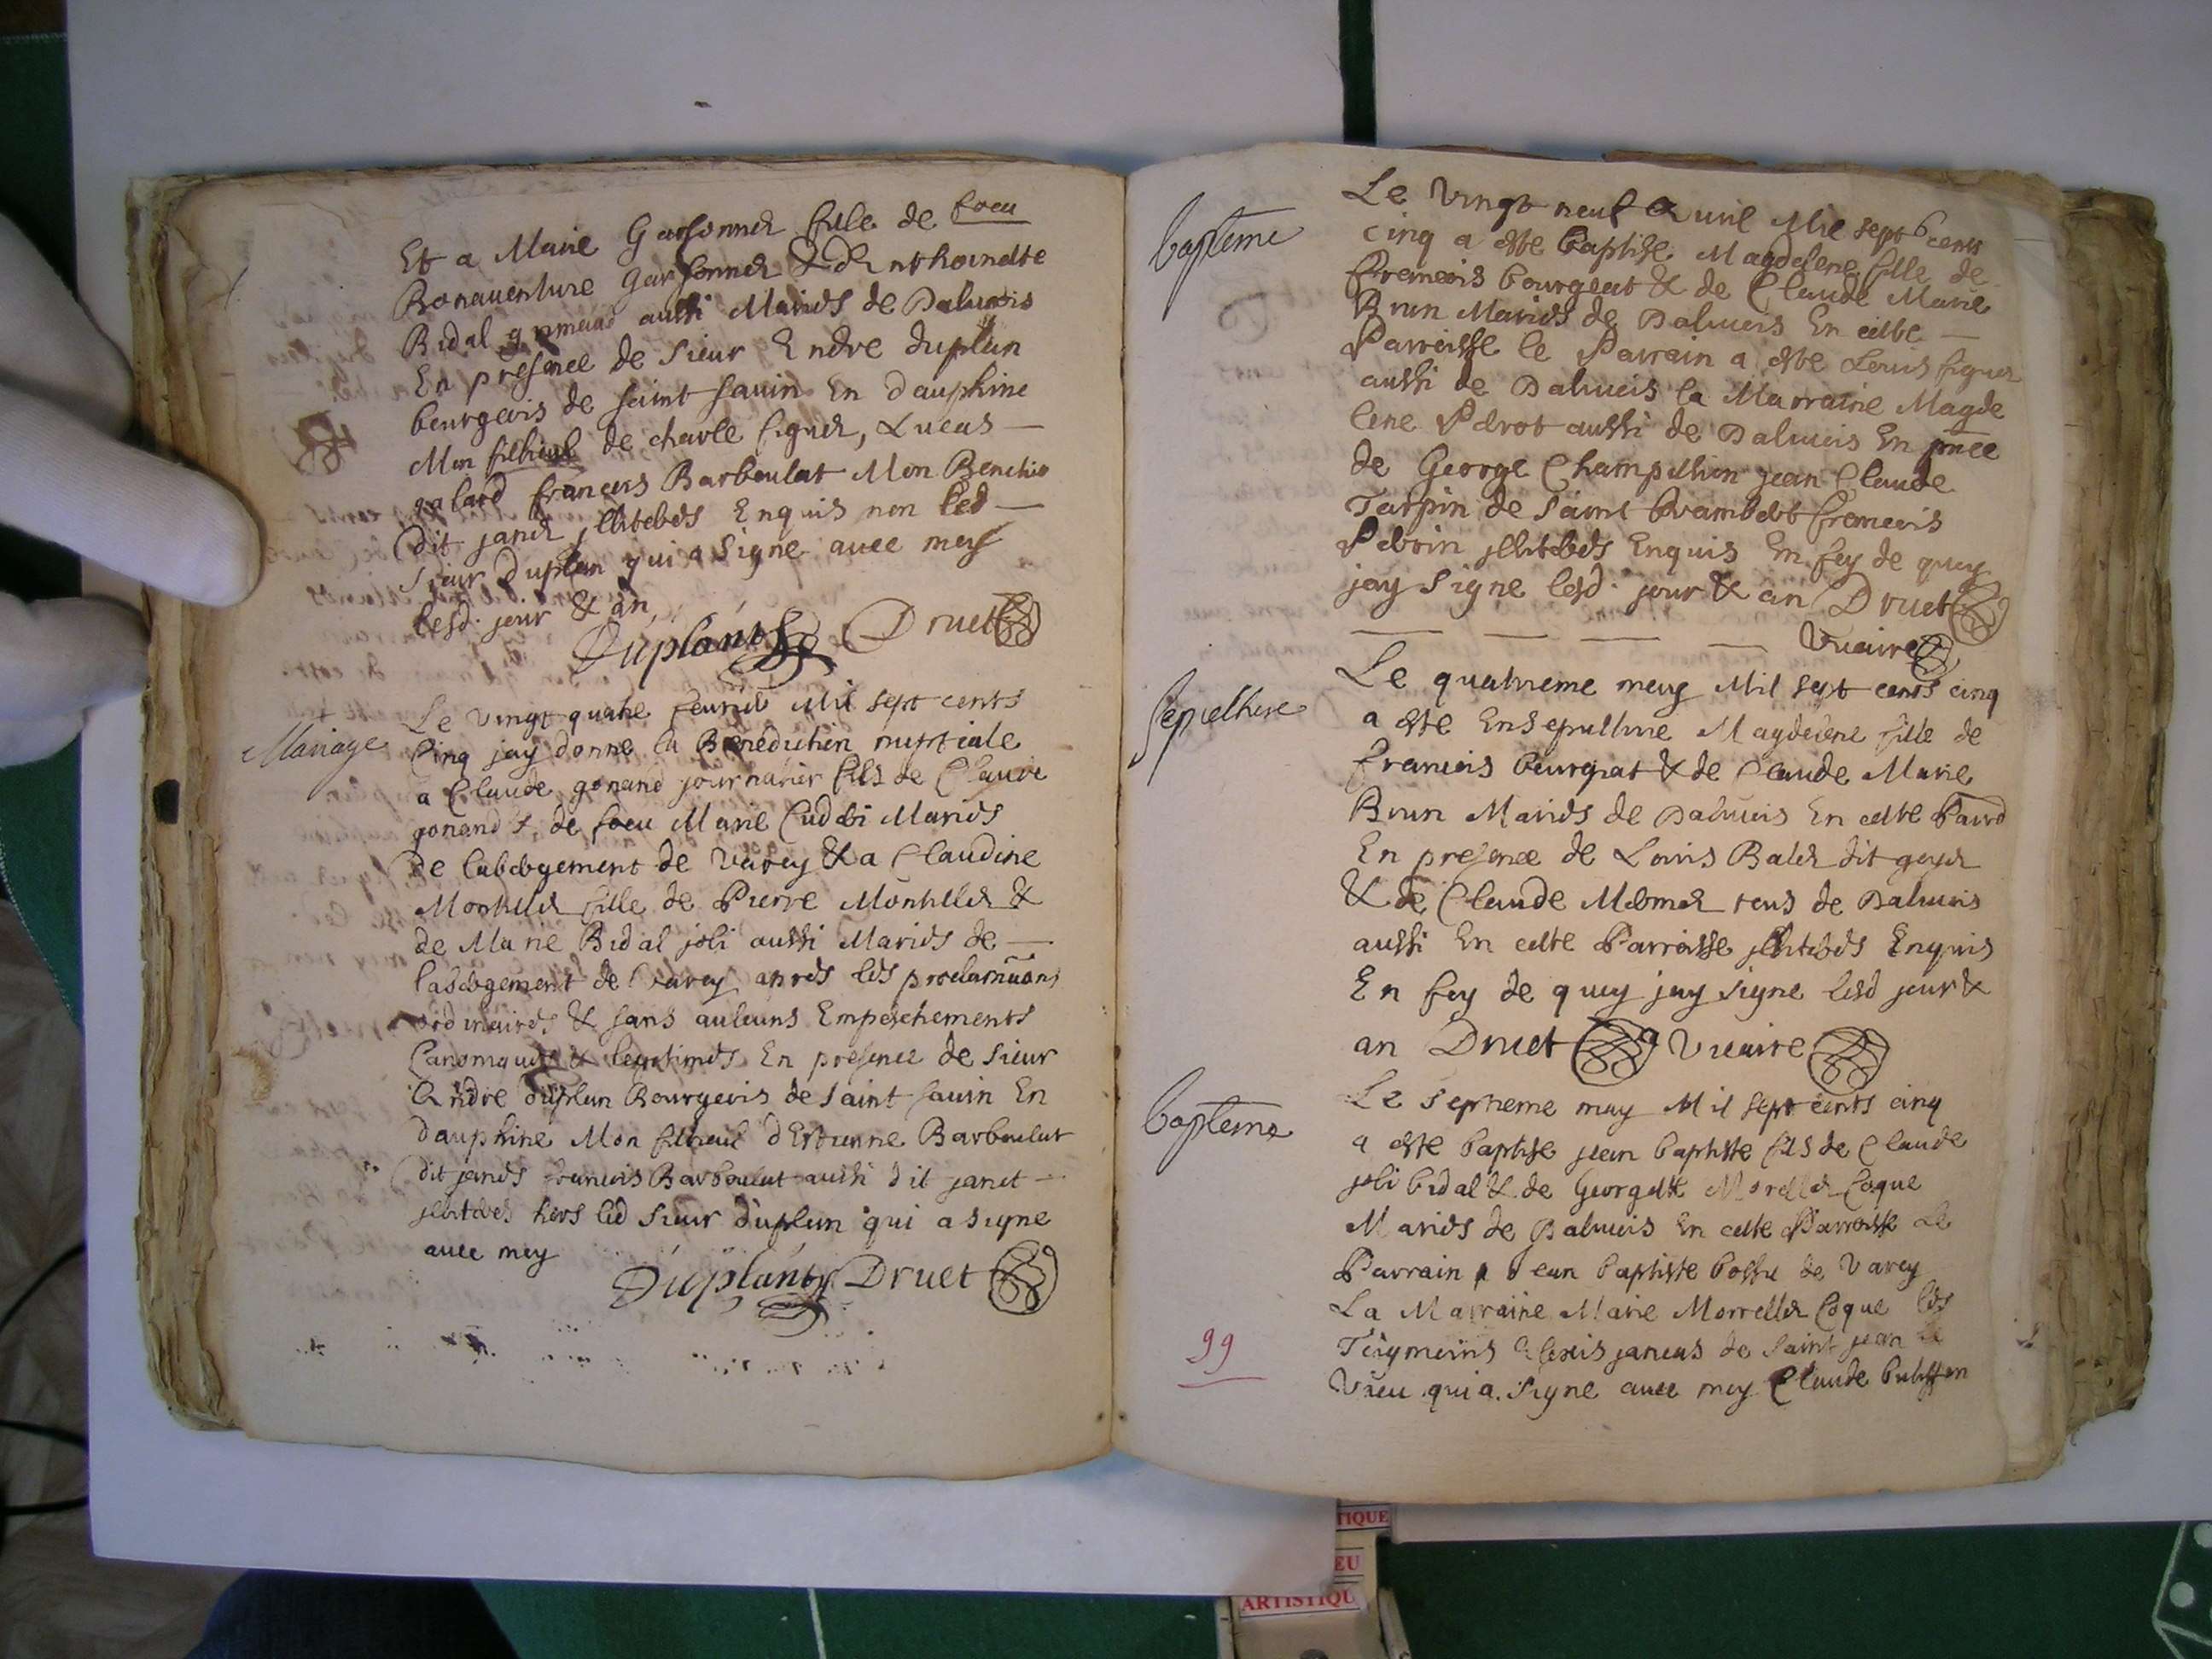 Et a Marie Garsonner fille de foeu
Bonaventure Garsonner & d Enthoinette
Bidal aussi Mariés de Daluvois
En presence de sieur Endre duplan
bourgeois de saint savin En dauphine
Mon filheul de charle figuer, Lucas —
galard francois Barboulat Mon Benchio
dit janer jllitebés Enquis non led —
sieur Duplan qui a signe avec moy
lesd. jour & an,
Duplant Druet
Mariage
Le vingt quatre feuvrié Mil sept cents
Cinq jay donne la Benédichin nuptiale
a Claude gonand journalier fils de Claude
gonand & de foeu Marie Mariés
De labergement de varey & a Claudine
fille de Pierre &
de Marie Bidal joli aussi Mariés de —
labergement de Varey aprés lés proclamãons
ordinairés & sans auleuns Empeschements
Canoniques & legitimés En presence de sieur
Endre duplan Bourgeois de saint savin En
dauphine Mon filheul d'Estienne Barboulat
dit janés francois Barboulat aussi dit janet —
jllitebés hors led sieur duplan qui a signe
avec moy
Duplant Druet
bapteme
Le vingt neuf Avril Mil sept cents
cinq a este baptise Magdelene fille de
francois bourgeat & de Claude Marie
Brun Mariés de Daluvois En cette —
Parroisse le Parrain a este Louis figuer
aussi de Daluvois la Marraine Magde
lene Pérot aussi de Daluvois En pñce
de George Champillion jean Claude
Tarpin de saint Rambert francois
Pérrin jllitebés Enquis En foy de quoy
jay signe lesd. jour & an Druet
Vicaire
sepulthure
Le quatrieme may Mil sept cents cinq
a este Ensepulture Magdelene fille de
francois bourgeat & de Claude Marie
Brun Mariés de Daluvois En cette Parrõ
En presence de Louis Baler dit goyer
& de Claude tous de Daluvois
aussi En cette Parroisse jllitebés Enquis
En foy de quoy jay signe lesd jour &
an Druet Vicaire
bapteme
Le septieme may Mil sept cents cinq
a este baptise jean baptiste fils de Claude
joli bidal & de Georgette Moreller Coque
Mariés de Daluvois En cette Parroisse Le
Parrain jean baptiste bossu de Varey
La Marraine Marie Morreller Coque lés
Tesgmoins Alexis jancas de saint jean le
Vieu qui a. signe avec moy Claude
99
TIQUE
EU
ARTISTIQU